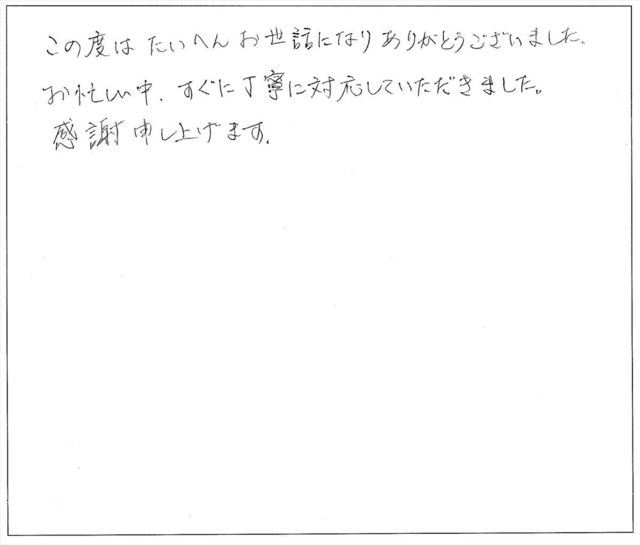 この度は たいへん お世話になり ありがとうございました、
お忙しい中、すぐに丁寧に対応していただきました。
感謝申し上げます。